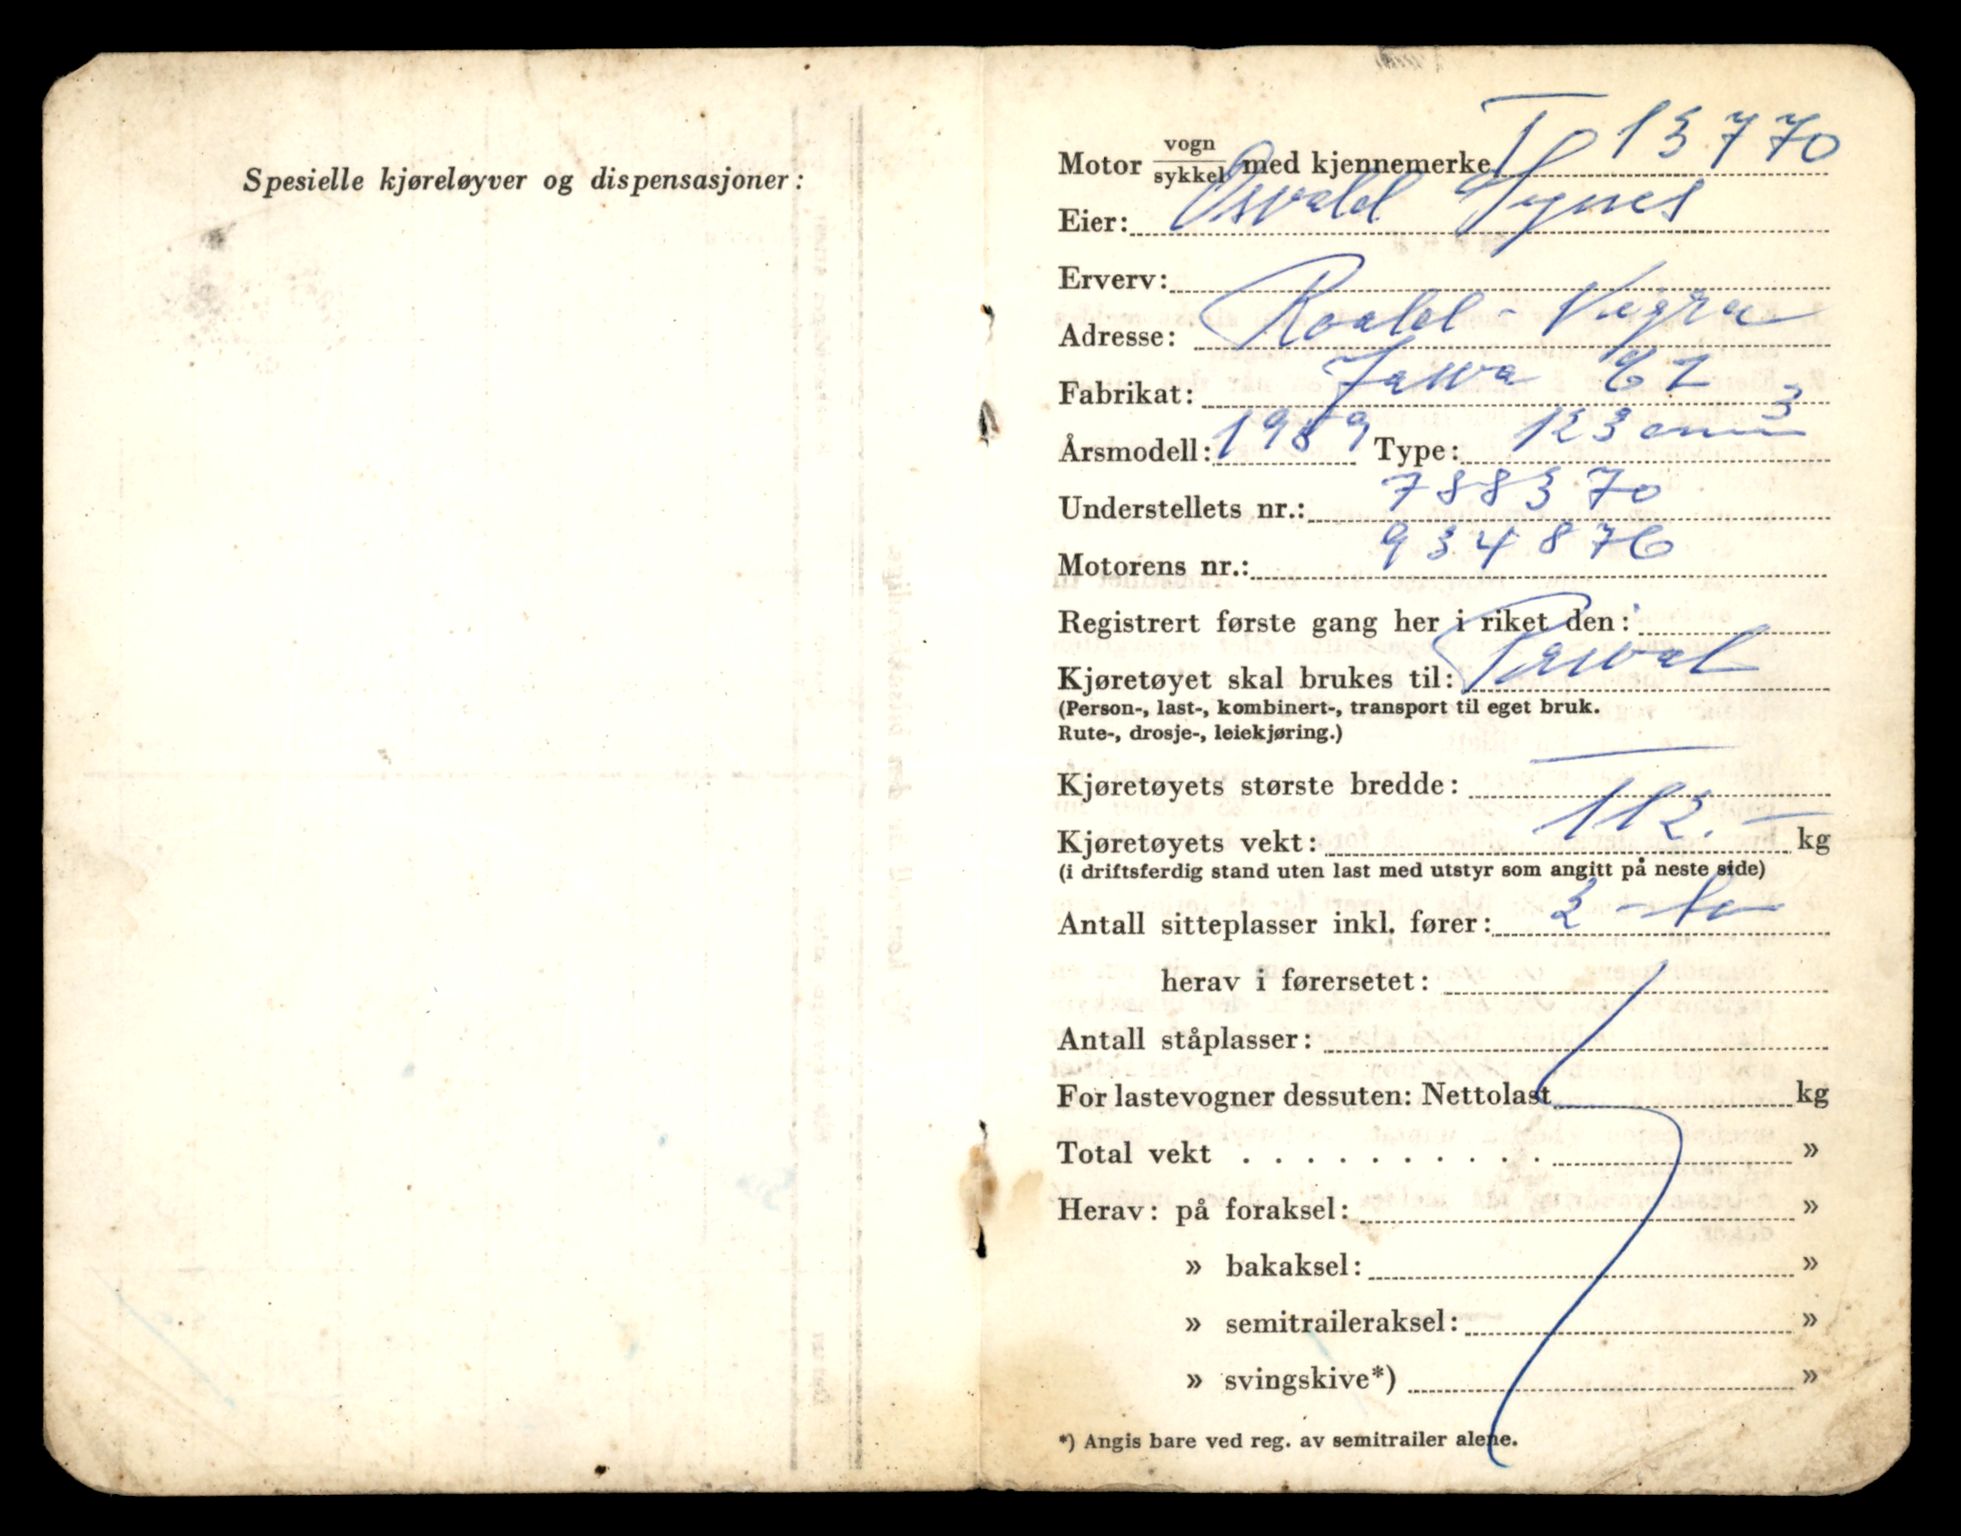 Spesielle kjøreløyver og dispensasjoner:
Motor vogn/sykkel med kjennemerke T 13770
Eier: Osvald Synes
Erverv:
Adresse: Roald - Vigra
Fabrikat: Jawa CZ
Årsmodell: 1959 Type: 123 cm3
Understellets nr.: 788370
Motorens nr.: 934876
Registrert første gang her i riket den:
Kjøretøyet skal brukes til:
(Person-, last-, kombinert-, transport til eget bruk.
Rute-, drosje-, leiekjøring.)
Kjøretøyets største bredde: —
Kjøretøyets vekt: 112.— kg
(i driftsferdig stand uten last med utstyr som angitt på neste side)
Antall sitteplasser inkl. fører: 2 - to
herav i førersetet:
Antall ståplasser:
For lastevogner dessuten: Nettolast kg
Total vekt . . . . . . . . . . »
Herav: på foraksel: »
» bakaksel: »
» semitraileraksel: »
» svingskive*) »
*) Angis bare ved reg. av semitrailer alene.